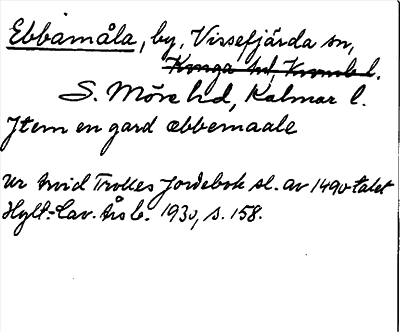 Ebbamåla, by, Vissefjärda sn,
Konga hd, Kronob. l.
S. Möre hd, Kalmar l.
Jtem en gard ebbemaale
Ur Arvid Trolles Jordebok sl. av 1490-talet
Hylt.-Cav. Årsb. 1930, s. 158.